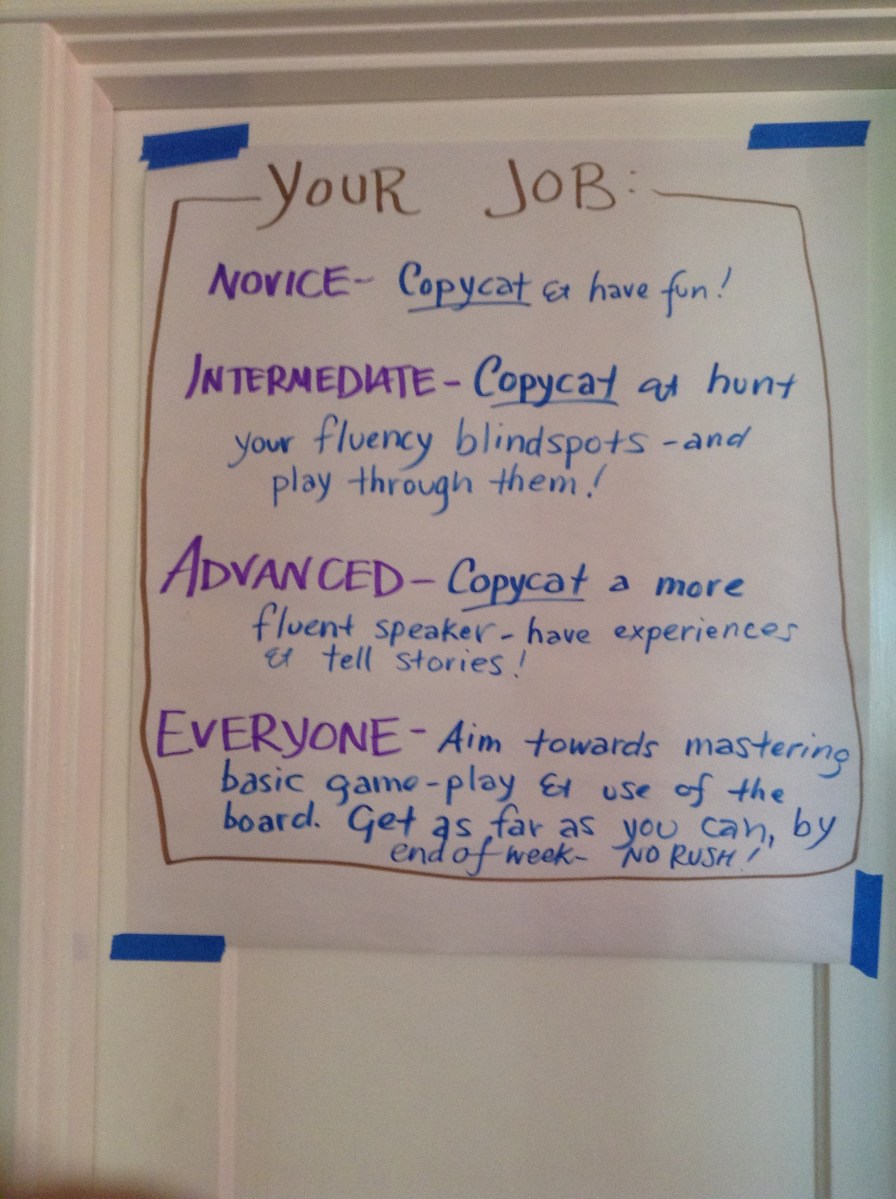 YOUR JOB:
NOVICE- Copycat & have fun!
INTERMEDIATE - Copycat & hunt
your fluency blindspots - and
play through them!
ADVANCED - Copycat a more
fluent speaker - have experiences
& tell stories!
EVERYONE - Aim towards mastering
basic game-play & use of the
board. Get as far as you can, by
end of week- NO RUSH!